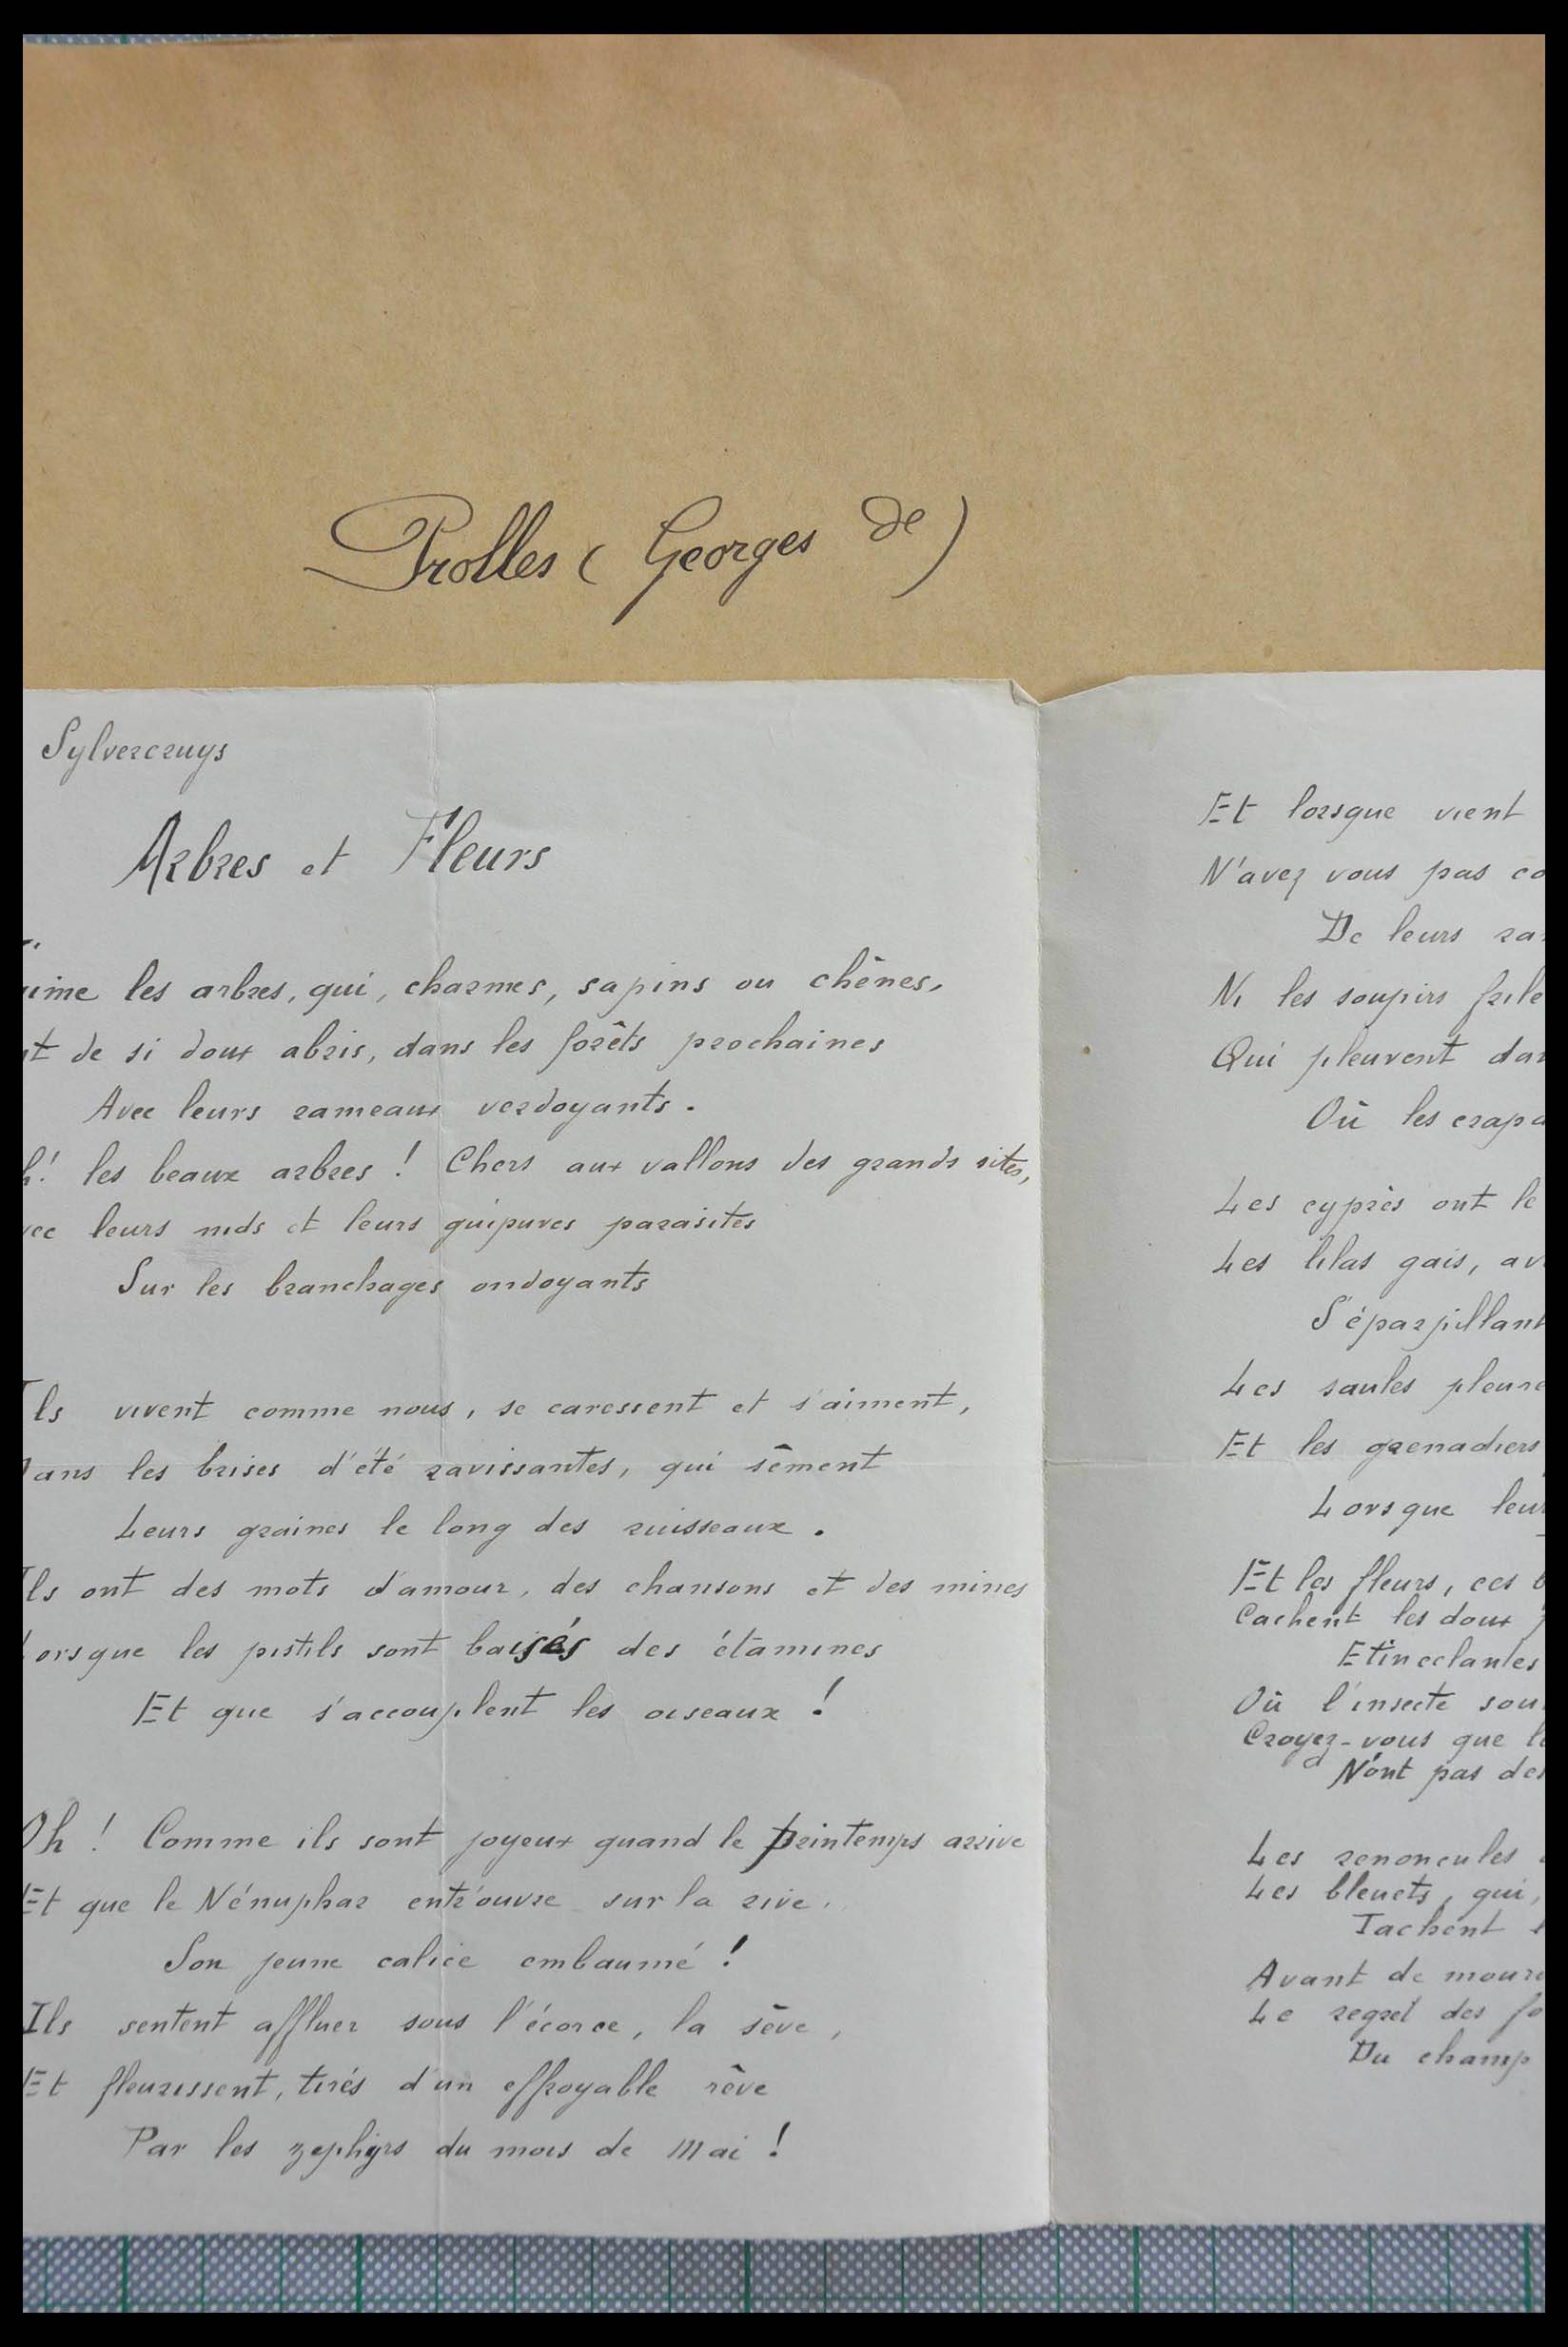 Prolles ( Georges de )
Sylvercruys
Arbres et Fleurs
les arbres, qui, charmes, sapins ou chênes,
de si doux abris, dans les forêts prochaines
Avec leurs rameaux verdoyants.
les beaux arbres ! Chers aux vallons des grands sites,
leurs nids et leurs guipures parasites
Sur les branchages ondoyants
Ils vivent comme nous, se caressent et s'aiment,
Dans les brises d'été ravissantes, qui sêment
Leurs graines le long des ruisseaux.
Ils ont des mots d'amour, des chansons et des mines
Lorsque les pistils sont baisés des étamines
Et que s'accouplent les oiseaux !
Oh ! Comme ils sont joyeux quand le printemps arrive
Et que le Nénuphar entr'ouvre sur la rive.
Son jeune calice embaumé !
Ils sentent affluer sous l'écorce, la sève,
Et fleurissent, tirés d'un effroyable rêve
Par les zephyrs du mois de Mai !
Et lorsque vient
N'avez vous pas co
De leurs ra
Ni les soupirs frile
Qui pleuvent dan
Où les crapa
Les cyprès ont le
Les lilas gais, av
S'éparpillant
Les saules pleure
Et les grenadiers
Lorsque leur
Et les fleurs, ces
Cachent les doux
Etincelantes
Où l'insecte sou
Croyez-vous que l
N'ont pas des
Les renoncules
Les bleuets, qui,
Tachent
Avant de mouri
Le regret des fo
Du champ